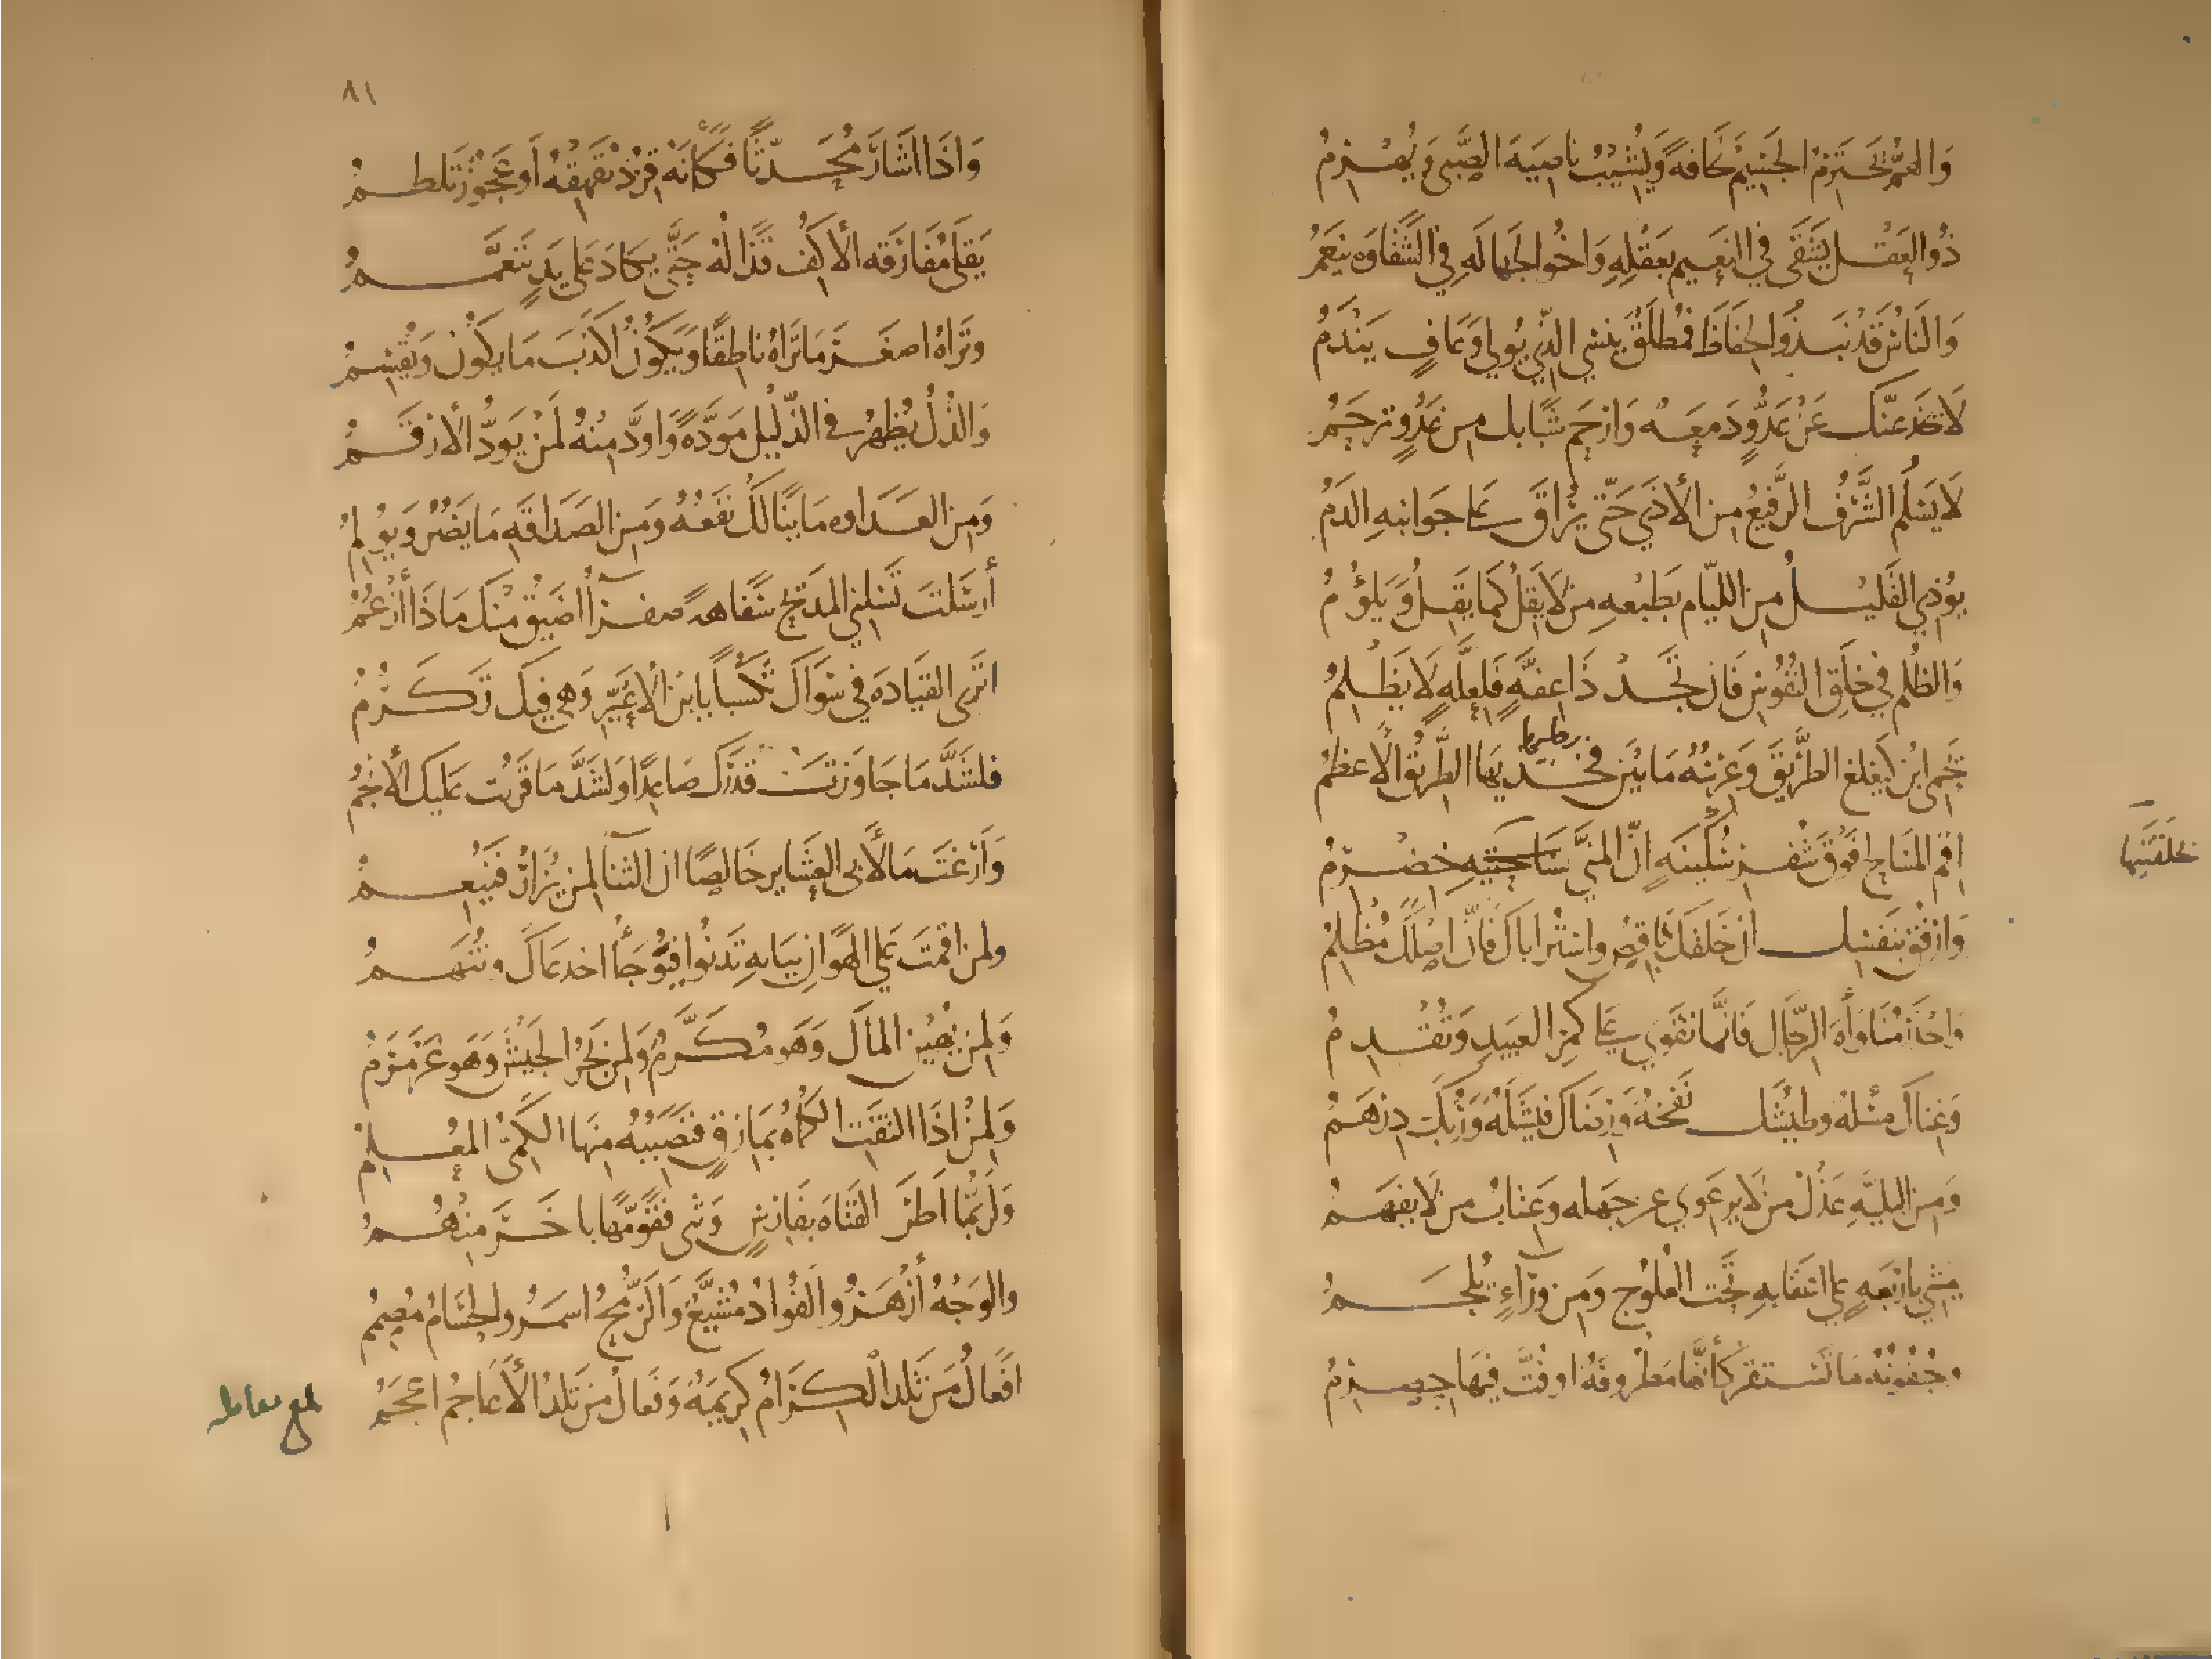 وَالهَمُّ يَختَرِمُ الجَسِيمَ نَحافةً وَيُشيبُ ناصِيَةَ الصَّبيِّ وَيُهرِمُ
ذُو العَقلِ يَشقَى في النَعيمِ بعَقلِهِ وَاخُو الجَهالةِ في الشَّقاوَةِ يَنعَمُ
وَالنَاسُ قَد نَبَذُوا الحِفَاظَ فمُطلَقٌ يَنسَى الذّي يُولي وَعَافٍ يَندَمُ
لا يَخدَعنّكَ عَن عَدُوٍّ دَمعُه وَارحَم شَبابك مِن عَدُوٍ ترحَمُ
لا يَسلَمُ الشَّرَفُ الرَّفيعُ مِن الأذَى حَتّى يُرَاقَ على جَوانبهِ الدَمُ
يُوذي القَليلُ مِنَ اللئامِ بطَبعهِ مَن لا يَقِلُّ كَما يَقِلُّ وَيَلؤُمُ
وَالظُلمُ في خَلقِ النُفُوسِ فَان تَجِد ذَا عِفَّةٍ فَلِعِلَّةٍ لا يَظلِمُ
يَحمي ابنُ كَيغلغ الطَّريقَ وَعِرسُهُ مَا بَينَ فخذيها الطَّريقُ الأعظمُ
رجليها
اقِمِ المَسَالحَ فَوقَ شُفرِ سُكَينَةٍ انّ المَنِيَّ بسَاحتيهِ خِضرِمُ
بحلقَتَيها
وَارفُق بنَفسِكَ انّ خَلقَكَ نَاقِصٌ واستُر ابَاكَ فَانّ اصلَكَ مُظلِمُ
وَاحذَر مُنَاوَأةَ الرّجَالِ فَانّما تَقوَى على كمَرِ العَبيدِ وَتُقدِمُ
وَغِناكَ مسئلَةٌ وطَيشُكَ نَفخَةٌ وَرِضَاكَ فَيشَلةٌ وَرَبُّكَ دِرهَمُ
وَمِنَ البَليَّةِ عَذلُ مَن لا يرعَوي عن جَهلهِ وَعِتابُ من لا يفهَمُ
يَمشي باربَعَةٍ على اعقَابهِ تَحتَ العُلوجِ وَمِن وَرَاءٍ يُلجَمُ
وجُفُونُهُ مَا تَستقرُّ كأنَّهَا مَطرُوفَةٌ او فُتَّ فيها حِصرِمُ
٨١
وَاذَا اشَارَ مُحَدّثًا فكَأنّهُ قِردٌ يُقَهقِهُ أو عَجُوزٌ تَلطِمُ
يَقلَى مُفَارَقةَ الأكُفّ قَذَالُهُ حَتّى يَكادَ عَلى يَدٍ يَتَعَمَّمُ
وتَرَاهُ اصغَرَ مَا تَرَاهُ ناطِقًا وَيَكونُ اكذَبَ مَا يكُونُ وَيُقسِمُ
وَالذُلُّ يُظهِرُ في الذّليلِ مَوَدّةً وَاوَدُّ مِنهُ لمَن يَوَدُّ الأرقَمُ
وَمِنَ العَدَاوةِ مَا يَنالُكَ نَفعُهُ وَمِنَ الصَدَاقَةِ مَا يَضُرُّ وَيُولِمُ
أرسَلتَ تَسئلني المَديحَ سَفاهةً صَفرَآءُ اضيَقُ مِنكَ مَاذَا أزعُمُ
اتُرَى القِيَادَةَ في سِوَاكَ تكَسُّباً يا ابنَ الأعَيِّرِ وَهيَ فيكَ تَكَرُّمُ
فلشَدَّ مَا جَاوَزتَ قَدرَكَ صَاعِدًا وَلشَدَّ مَا قَرُبَت عَلَيكَ الأنجُمُ
وَأرَغتَ مَا لأبي العَشايرِ خَالِصًا ان الثَنَآ لمَن يُزَارُ فَيُنعِمُ
ولمن اقَمتَ عَلى الهَوانِ ببَابهِ تَدنُوا فيُوجَأُ اخدَعَاكَ وتُنهَمُ
وَلمَن يُهينُ المَالَ وَهوَ مُكَرَّمٌ وَلمَن يَجُرُّ الجَيشَ وَهوَ عَرَمرَمُ
وَلمَن اذَا التقَتِ الكُماةُ بمَازِقٍ فنَصيبُهُ مِنها الكَمِيُّ المُعلِمُ
وَلَرُبَّمَا اَطَرَ القَنَاةَ بفَارسٍ وَثنى فقَوَّمَها باخَرَ مِنهُمُ
والوَجهُ أزهَرُ والفُؤادُ مُشَيَّعٌ وَالرُّمحُ اسمَرُ والحُسَامُ مُصمِّمُ
افعَالُ مَن تَلِدُ الكِرَامُ كرِيمَةٌ وَفعَالُ مَن تَلِدُ الأعَاجمُ اعجَمُ